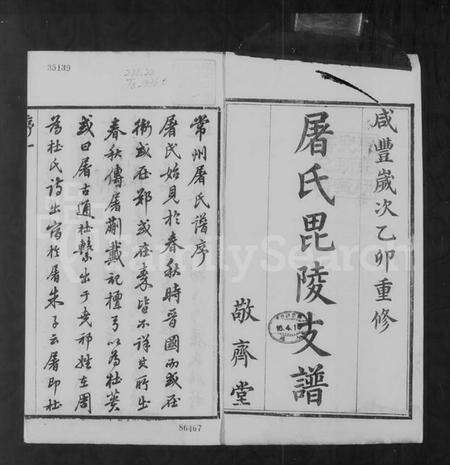 咸豐歲次乙卯重修
屠氏毘陵支譜
敬齊堂
16.4.15
35139
常州屠氏譜序
屠氏始見於春秋時晉國而或在
衛或在鄭或在秦皆不詳其所出
春秋傳屠蒯戴記檀弓以為杜蕢
或曰屠古通杜系出于堯祁姓在周
為杜氏詩出宿於屠朱子云屠即杜
序一
86467
FamilySearch